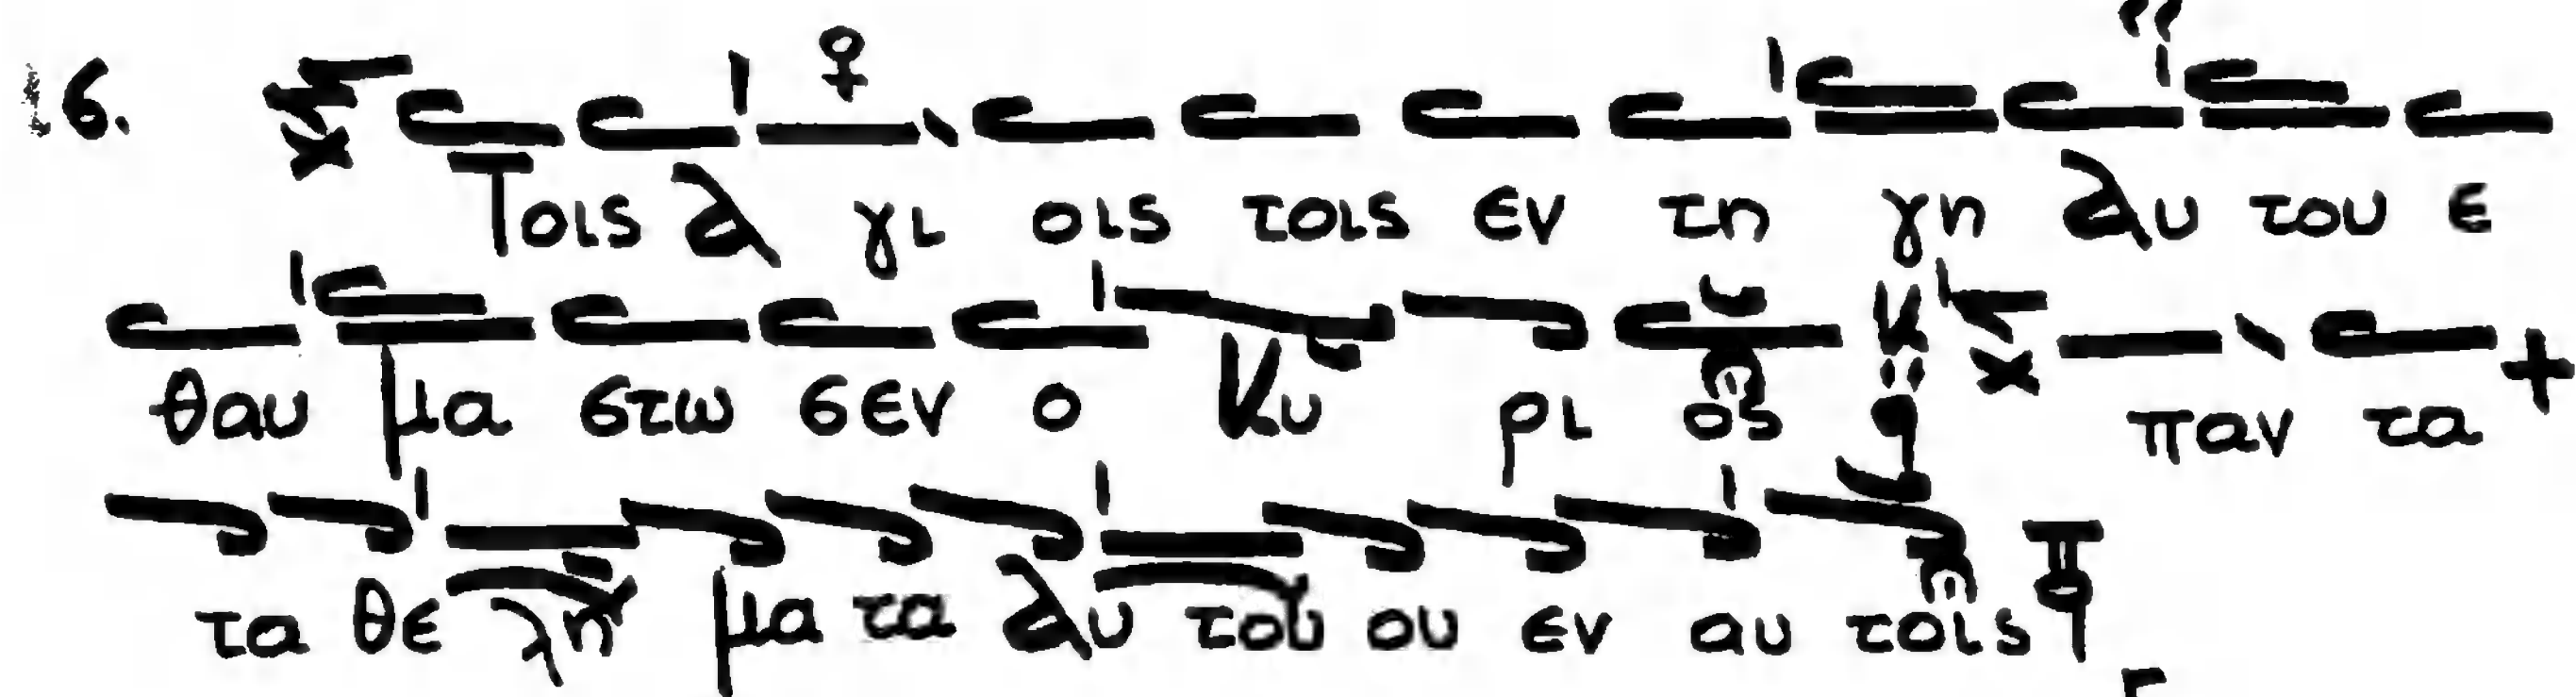 6. Τοις α γι οις τοις εν τη γη αυ του ε
θαυ μα στω σεν ο Κυ ρι ος παν τα
τα θε λη μα τα αυ του ου εν αυ τοις